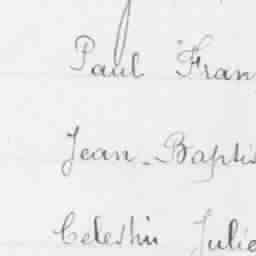 Paul Fran
Jean-Baptis
Celestin Julie